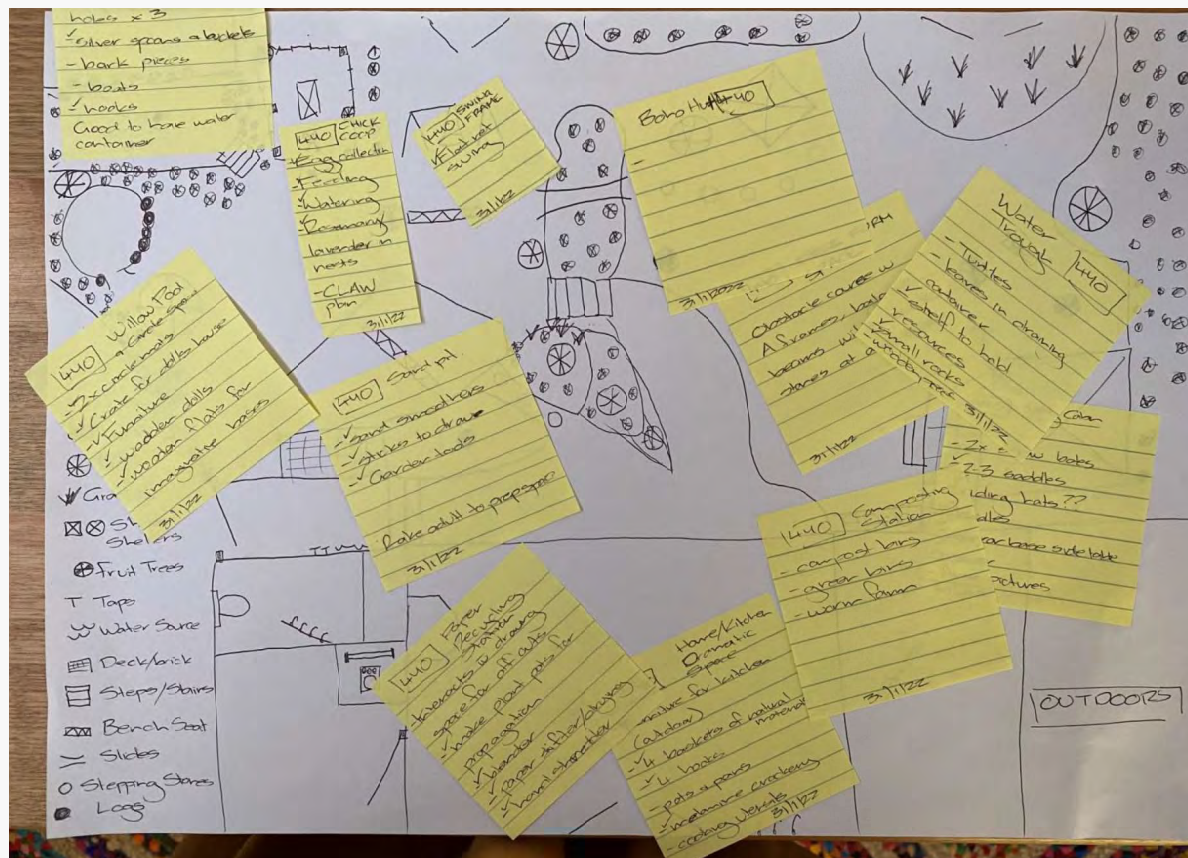 holes x 3
silver spoons & buckets
- bark pieces
- boats
hooks
Good to have water
container
440 CHICK
COOP
Egg collecting
Feeding
Watering
Rosemary/
lavender in
nests
- CLAW
plan
31/1/22
440 SWING
FRAME
Flat net
swing
31/1/22
Boho Hut 440
-
31/1/2022
Obstacle course w
A frames,
beams
31/1/22
Water
Trough 440
- Turtles
- leaves in draining
container
shelf to hold
resources
small rocks
31/1/22
440 Willow Pod
& Circle space
- 2x circle mats
Crate for dolls house
Furniture
wooden dolls
wooden flats for
imaginative bases
31/1/22
440 Sand pit
sand smoothers
sticks to draw
Garden tools
Rake adult to prep space
31/1/22
- 2x
2-3 saddles
hats??
side table
440 Composting
Station
- compost bins
- green bins
- worm farm
31/1/22
440 Paper
Recycling
Station
- Interacts w drawing
space for off cuts
make plant pots for
propagation
blender
hand shredder
Home/Kitchen
Dramatic
Space
for kitchen
(outdoor)
4 baskets of natural
materials
4 hooks
- pots & pans
- melamine crockery
- cooking utensils
31/1/22
Fruit Trees
T Taps
Water Source
Deck/brick
Steps/Stairs
Bench Seat
Slides
Stepping Stones
Logs
OUTDOORS